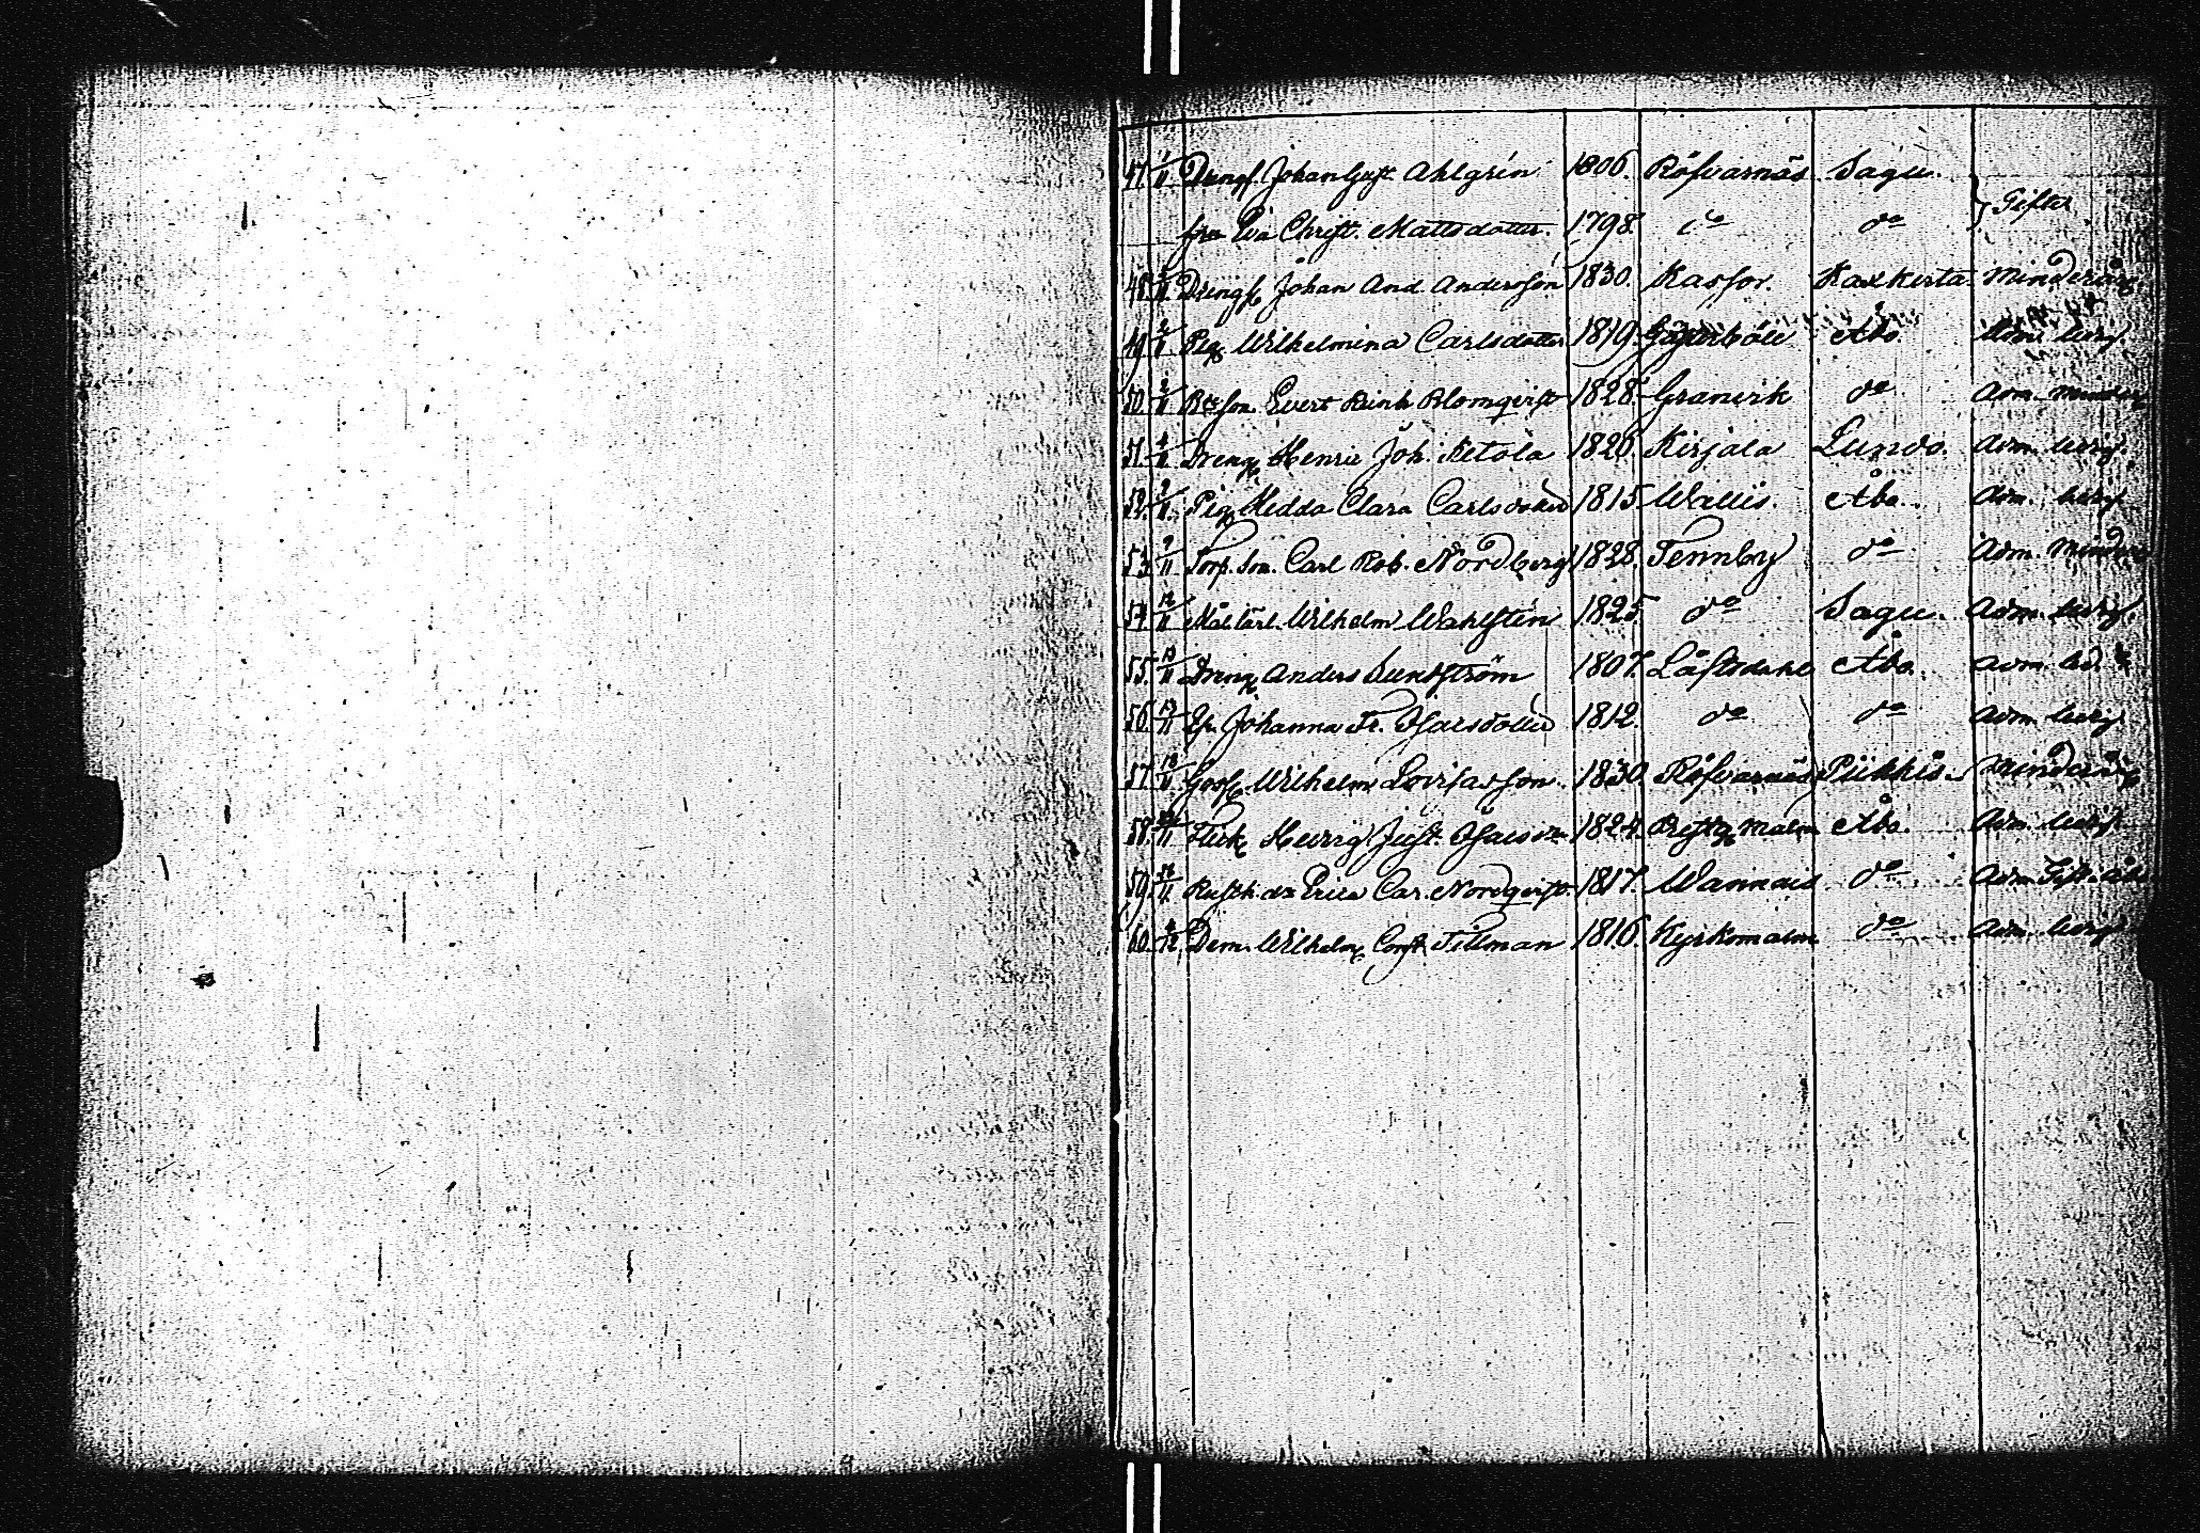 47. 1/11 Drengs. Johan Gust. Ahlgrén 1806. Röfvarnäs Sagu.
fru Eva Christ. Mattsdotter. 1798. do do } Gifter
48. 11 Drengs. Johan And. Andersson 1830. Kassor. Kaxkerta. Minderårig.
49. 2/11 Pig. Wilhelmina Carlsdotter 1819. Åbo. Adm. ledig.
50. 2/11 Bdeson. Evert Reinh. Blomqvist 1828. Granvik do Adm. Minder
51. 4/11 Dreng. Henric Joh. Ketola 1826. Kirjala Lundo. Adm. ledig.
52. 11 Pig. Hedda Clara Carlsdotter 1815. Wallis. Åbo. Adm. ledig
53. 9/11 Torp. son. Carl Rob. Nordberg 1828. Tennby do Adm. Minder
54. 12/11 Mål. lärl. Wilhelm Wahlstén 1825. do Sagu. Adm. ledig.
55. 13/11 Dreng. Anders Sundström 1807. Läftsdahl Åbo. Adm. led.
56. 13/11 Johanna Fr. Isacsdotter 1812. do do Adm. ledig
57. 18/11 Goss. Wilhelm Lovisasson. 1830. Röfvarnäs Piikkis. Minderårig
58. 11 Flick. Hedvig Just. Isacsdr 1824. Prestg. malm Åbo. Adm. ledig.
59. 11 Rusth. dr Erica Car. Nordqvist. 1817. Wannais do Adm.
60. 12 Dem. Wilhelm. Const. Tillman 1816. Kyrkomalm do Adm. ledig